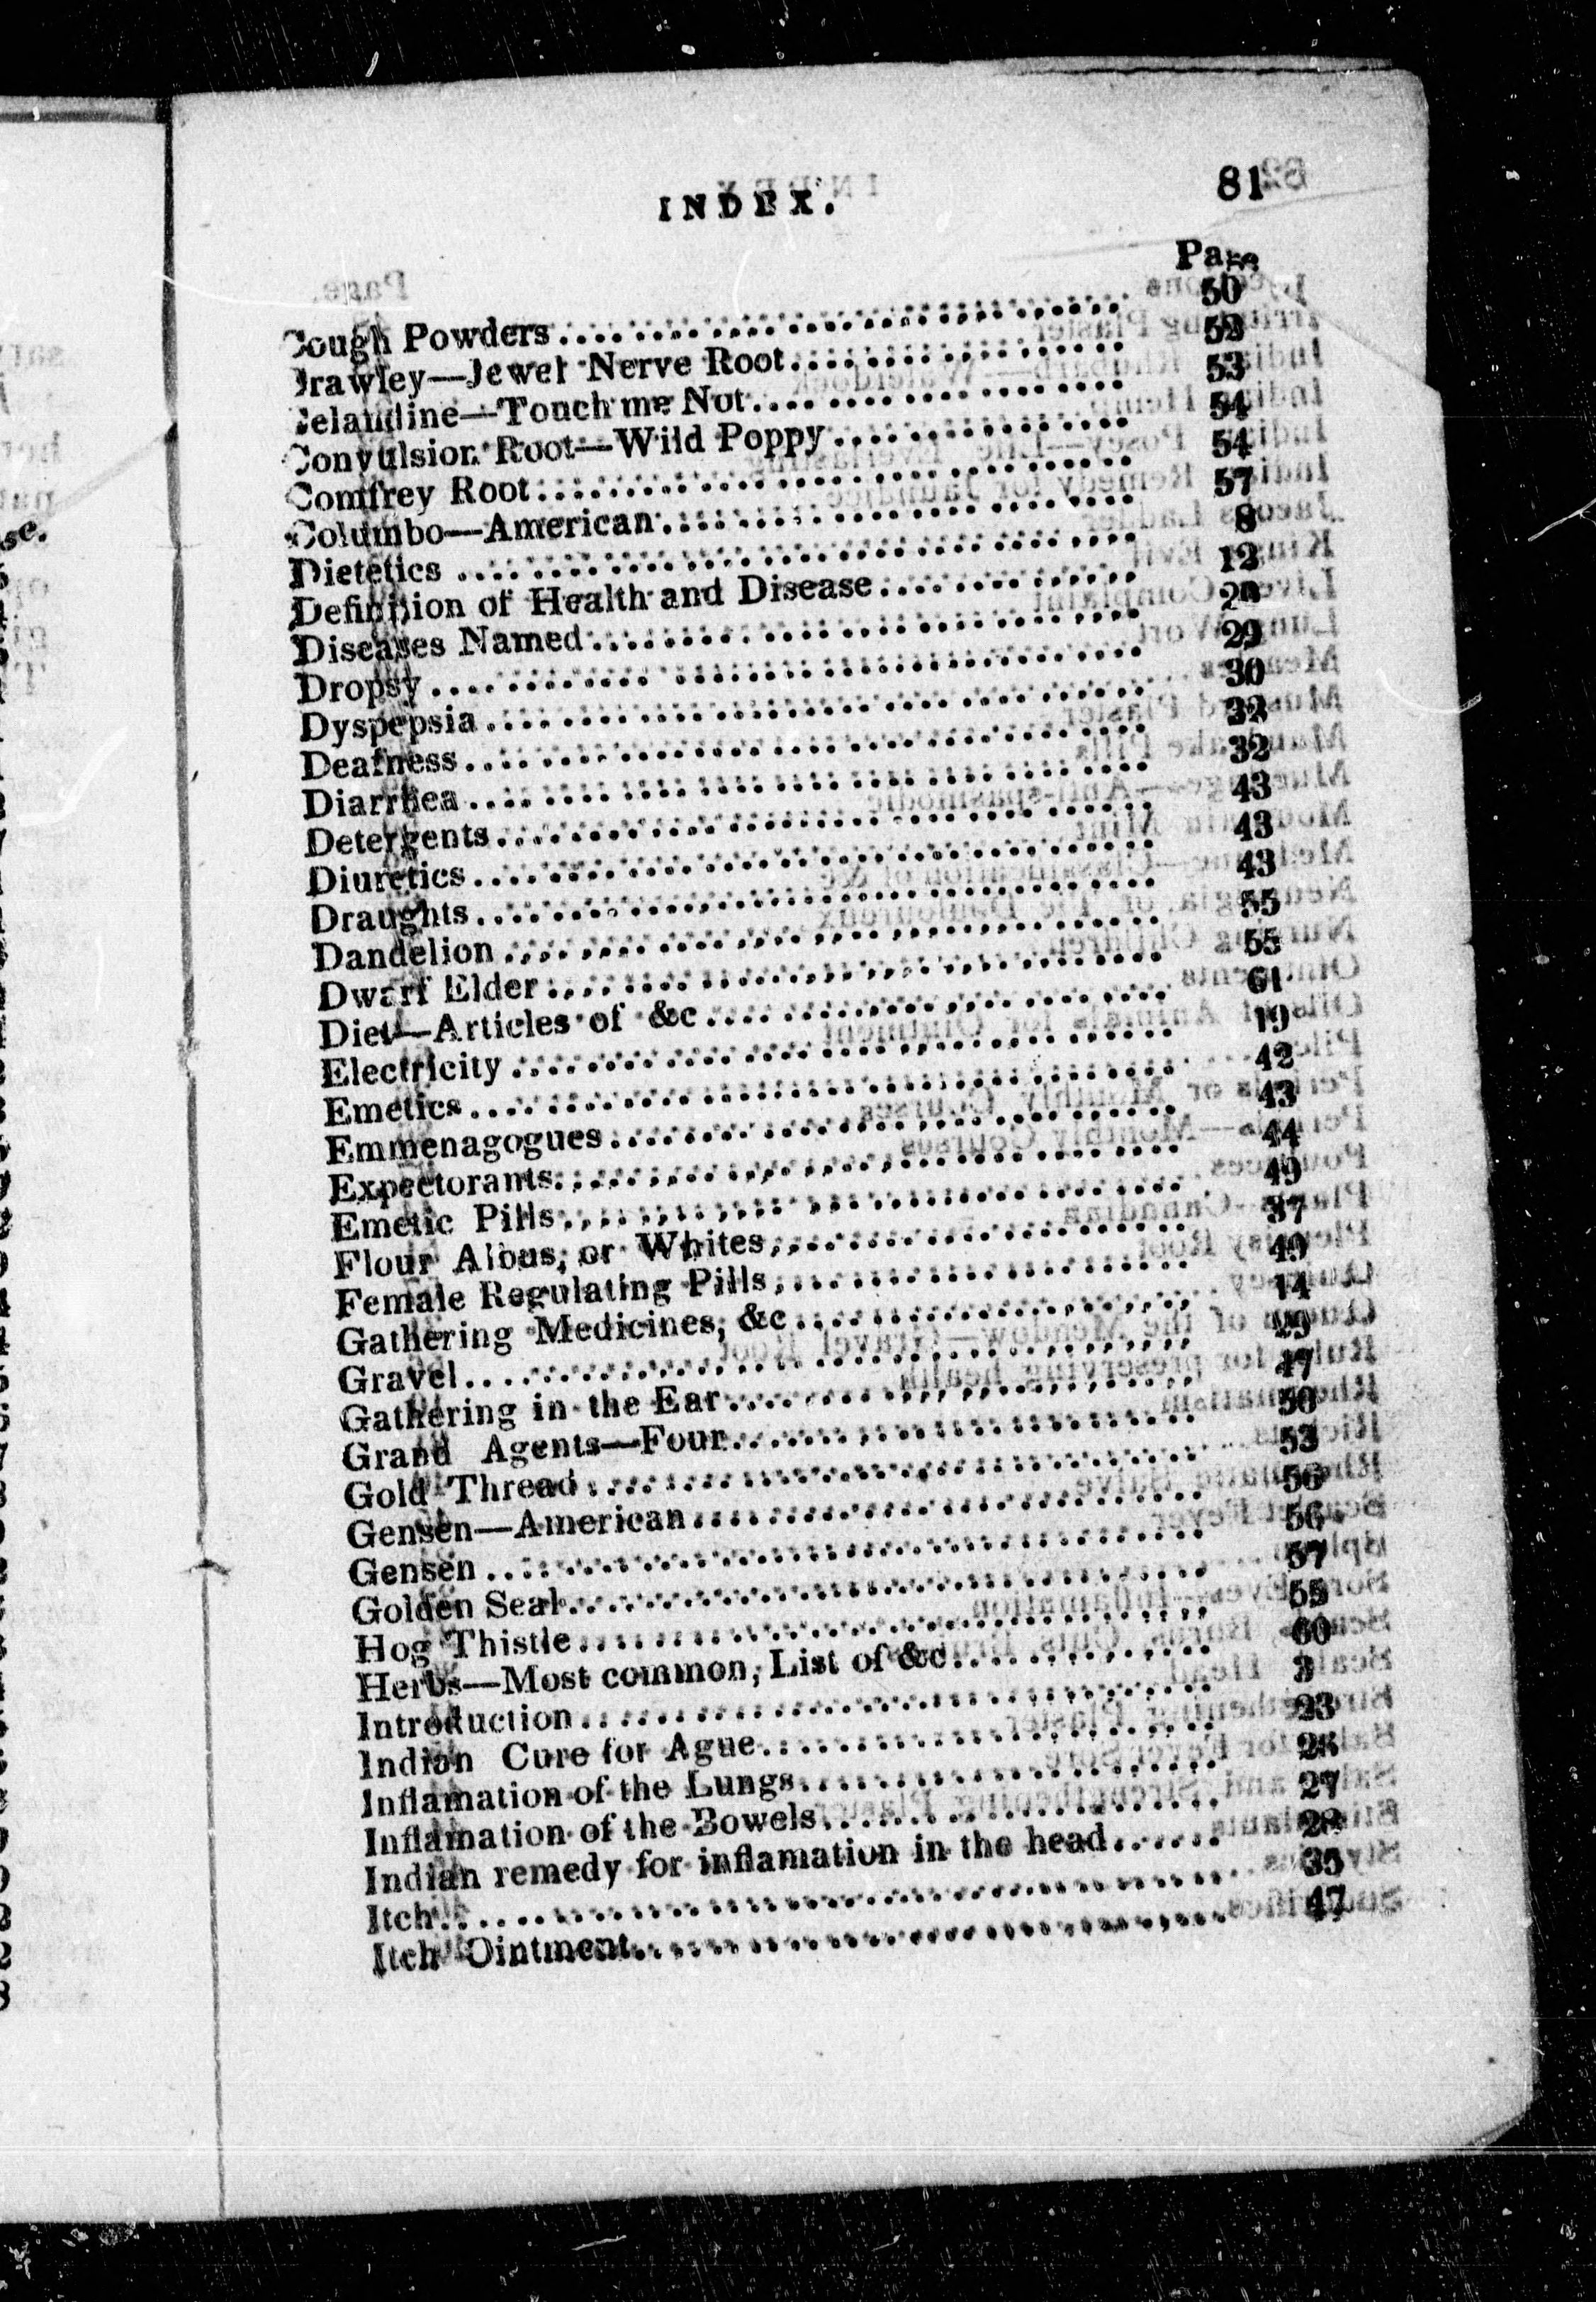 INDEX. 81
Page
Cough Powders 50
Crawley—Jewel Nerve Root 52
Celandine—Touch me Not 53
Convulsion Root—Wild Poppy 54
Comfrey Root 54
Columbo—American 57
Dietetics 8
Definition of Health and Disease 12
Diseases Named 20
Dropsy 29
Dyspepsia 30
Deafness 32
Diarrhea 32
Detergents 43
Diuretics 43
Draughts 43
Dandelion 55
Dwarf Elder 55
Diet—Articles of &c 61
Electricity 19
Emetics 42
Emmenagogues 43
Expectorants 44
Emetic Pills 49
Flour Albus, or Whites 37
Female Regulating Pills 49
Gathering Medicines, &c 14
Gravel 29
Gathering in the Ear 47
Grand Agents—Four 50
Gold Thread 53
Gensen—American 56
Gensen 56
Golden Seal 57
Hog Thistle 55
Herbs—Most common, List of &c 60
Introduction 3
Indian Cure for Ague 23
Inflamation of the Lungs 25
Inflamation of the Bowels 27
Indian remedy for inflamation in the head 28
Itch 35
Itch Ointment 47